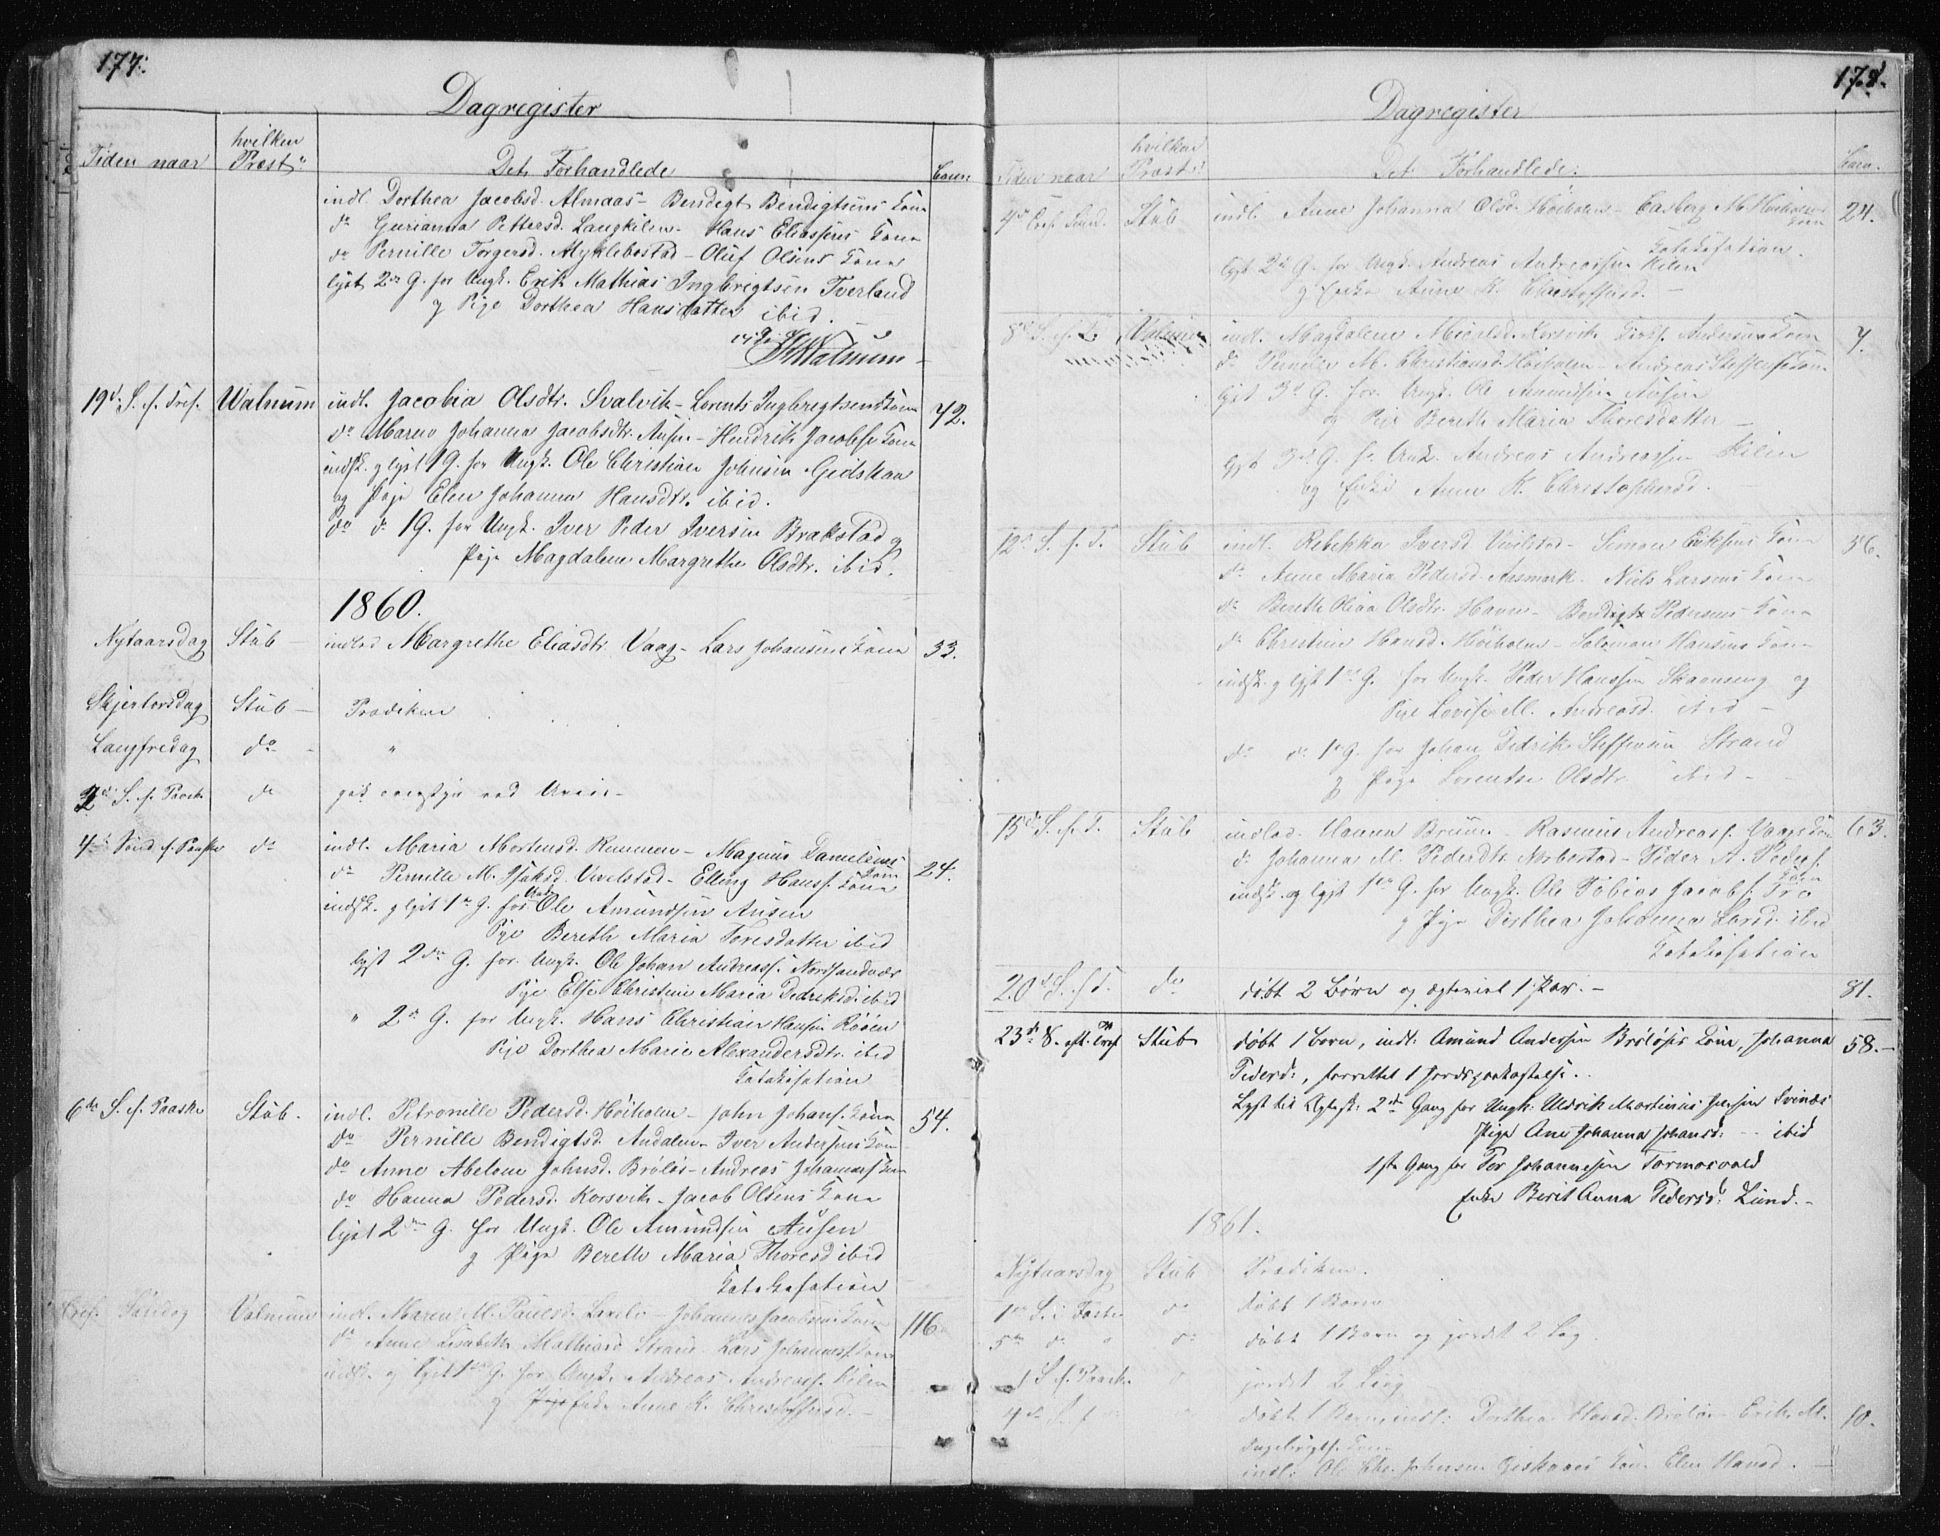 177.
Dagregister
Tiden naar
hvilken
Præst
Det Forhandlede
indl. Dorthea Jacobsd. Almaas - Bendigt Bendigtsens Kone
do Gurianna Pettersd. Langkilen - Hans Eliassens Kone
do Pernille Torgersd. Myklebostad - Oluf Olsens Kone
lyst 2n G. for Ungk. Erik Mathias Ingbregtsen Tverland
og Pige Dorthea Hansdatter ibid.
Walnum
19d S. f. Tref. Walnum indl. Jacobia Olsdtr. Svalvik - Lorents Ingbregtsens Kone 42.
do Maren Johanna Jacobsdtr. Ausen - Hendrik Jacobs. Kone
indsk. og lyst 1 G. for Ungk. Ole Christian Johnsen Geitskaa
og Pige Elen Johanna Hansdtr. ibid.
do do 1 G. for Ungk. Iver Peder Iversen Brækstad og
Pige Magdalene Margrethe Olsdtr. ibid.
1860.
Nytaarsdag Stub indled Margrethe Eliasdtr. Vaag - Lars Johansens Kone 33.
Skjertorsdag Stub Prædiken
Langfredag do "
2d S. f. Paask. do
4de Sönd. f. Paaske do indl. Maria Mortensd. Remmen - Magnus Danielsens Kone 24.
do Pernille M. Isaksd. Vevelstad - Elling Hanss. Kone
indsk. og lyst 1n G. for Ungk. Ole Amundsen Ausen
Pige Bereth Maria Toresdatter ibid
lyst 2den G. for Ungk. Ole Johan Andreass. Nordsandnæs
Pige Else Christine Maria Dedriksd. ibid
" 2n G. for Ungk. Hans Christian Hansen Rööen
Pige Dorthea Marie Alexandersdtr. ibid
Katekisation
6te S. f. Paaske Stub. indl. Petronille Pedersd. Høiholm - John Johans. Kone 54.
do Pernille Bendigtsd. Andalen - Iver Andersens Kone
do Anne Abelone Johnsd. Bröløs - Andreas Johannes. Kone
do Hanna Pedersd. Korsvik - Jacob Olsens Kone
lyst 2den G. for Ungk. Ole Amundsen Ausen
og Pige Bereth Maria Thoresd ibid
Katekisation
Tref. Söndag Valnum indl. Maren M. Paulsd. - Johannes Jacobsens Kone 116
do Anne Elisabeth Mathiasd Strand - Lars Johannes. Kone
indsk. og lyst 1ste G. for Ungk. Andreas Andreass. Kilen
og Enke Anne K. Christoffersd.
178.
Dagregister
Tiden naar
hvilken
Præst
Det Forhandlede:
4de Tref. Sönd. Stub indl. Anne Johanna Olsd. Høiholm - Casberg M. Høiholms Kone 24.
Katekisation.
lyst 2d G. for Ungk. Andreas Andreassen Kilen
og Enke Anne K. Christoffersd.
8d S. f. T. Walnum indl. Magdalene Korsvik Andersens Kone 7.
do Pernille M. Christiansd. Høiholm - Andreas Steffens. Kone
lyst 3d G. for Ungk. Ole Amundsen Ausen
og Pige Bereth Maria Thoresdatter
lyst 3d G. for Ungk. Andreas Andreassen Kilen
og Enke Anne K. Christophersd.
12d S. f. T. Stub indl. Rebekka Iversd Vevelstad - Simon Eriksens Kone 36.
do Anne Maria Pedersd. Aasmark. Niels Larsens Kone
do Bereth Oliaa Olsdtr. Havn - Bendigt Pedersens Kone
do Christine Hansd. Høiholm - Solomon Hansens Kone
indsk. og lyst 1ste G. for Ungk. Peder Hanssen Skaanseng og
Pige Lovise M. Andreasd. ibid
do do 1 G. for Johan Didrik Steffensen Strand
og Pige Lorentse Olsdtr. ibid
15de S. f. T. Stub indled. Hanna Bruun - Rasmus Andreass. Vaags Kone 63.
do Johanna M. Pedersdtr. - Peder A. Peders. Kone
indsk. og lyst 1ste G. for Ungk. Ole Tobias Jacobs. Tro
og Pige Dorthea Johanna Larsd. ibid
Katekisation
20d S. f. T. do döbt 2 Börn og ægteviet 1 Par. 81.
23de S. eft. Tref Stub döbt 1 barn, indl: Amund Andersen Bröløses Kone, Johanna 58.
Pedersd:, forrettet 1 Jordspaakastelse.
Lyst til Ægtesk: 2den Gang for Ungk. Uldrik Martinius Jensen Svinæs
Pige Ane Johanna Johansd: - ibid
1ste Gang for Per Johannesen Tormosvold
Enke Berit Anna Pedersd: Lund.
1861.
Nytaarsdag Stub Prædiken.
1ste S. i Faste do döbt 1 Barn
5te do " do döbt 1 Barn og jordet 2 Lig
1 S. f. Paask. jordet 2 Liig
4de S. f. döbt 1 Barn, indl: Dorthea Hansd. Bröløs - Erik M. 10.
Ingebrigts. Kone
indl: Ole Chr. Johnsen Geitskaaes Kone Elen Hansd.